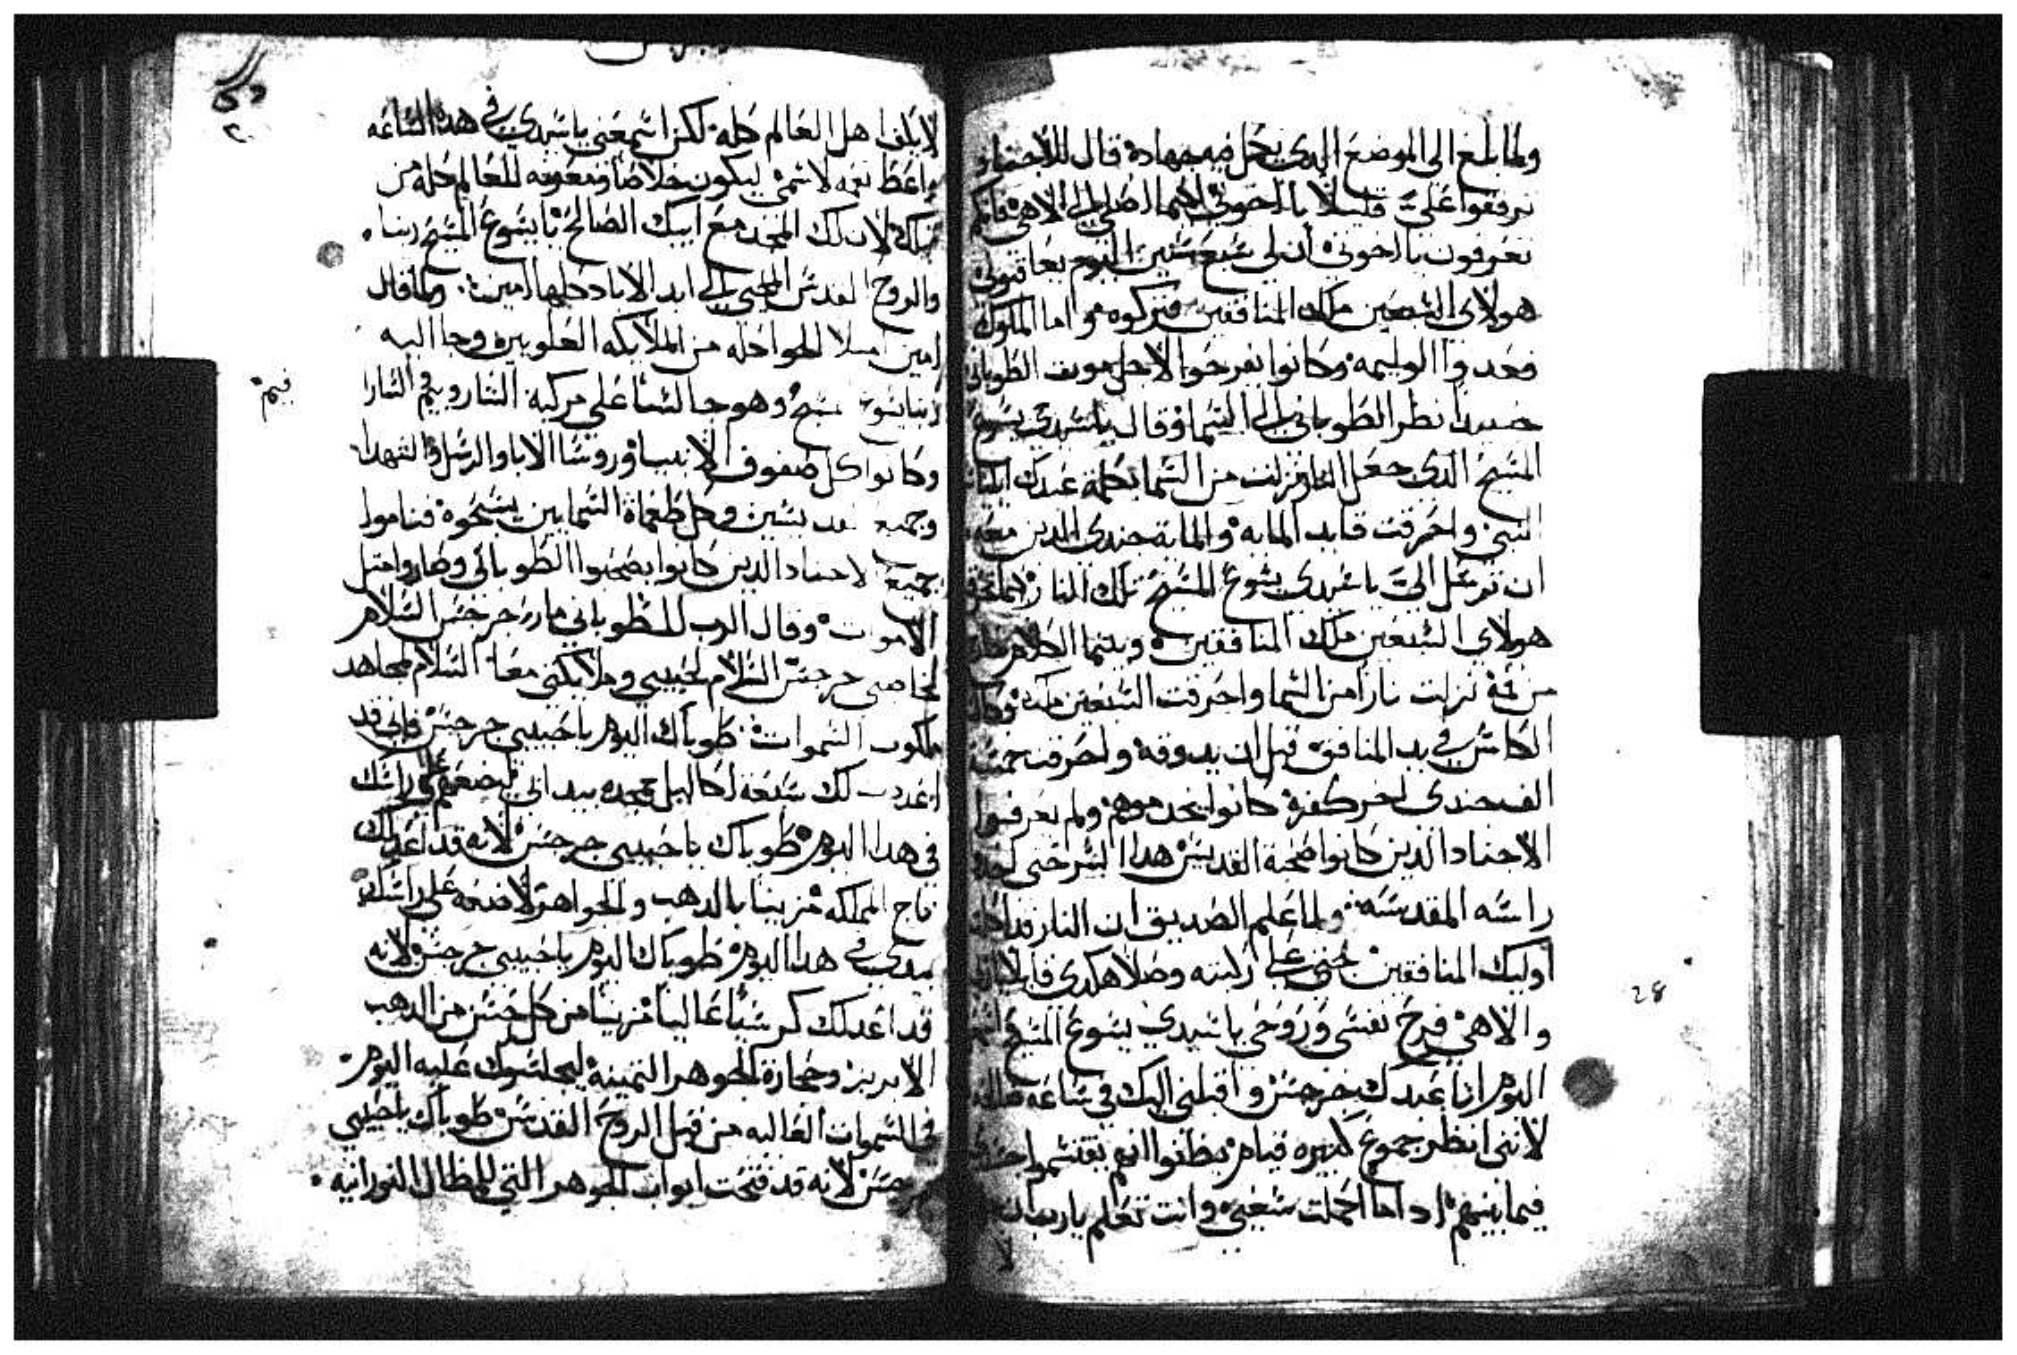 ولما بلغ الى الموضع الدي يكمل فيه جهاده قال للاجناد
ترفقوا علي قليلا يا اخوتي لكيما اصلي الى الاهي فانكم
تعرفون يا اخوتي ان لي سبع سنين اليوم يعاقبوني
هولاي السبعين ملك المنافقين فتركوه واما الملوك
فعدوا الوليمه وكانوا يفرحوا لاجل موت الطوباني
حينيد نظر الطوباني الى السما وقال يا سيدي يسوع
المسيح الدي جعل النار نزلت من السما بكلمة عبدك ايليا
النبي واحرقت قايد المايه والماية جندي الدين معه
ان ترسل الي يا سيدي يسوع المسيح تلك النار لكيما تحرق
هولاي السبعين ملك المنافقين وبينما الكلام خارج
من فمه نزلت نارا من السما واحرقت السبعين ملك وكان
الكاس في يد المنافق قبل ان يدوقه واحرقت خمسة
الف جندي اخر كفرة كانوا يخدموهم ولم يعرفوا
الاجناد الدين كانوا صحبة القديس هدا السر حتى اخد
راسه المقدسه ولما علم الصديق ان النار قد احرقت
أوليك المنافقين جتى على ركبته وصلا هكدى قايلا يا ربي
والاهي فرح نفسي وروحي يا سيدي يسوع المسيح
اليوم انا عبدك جرجس واقبلني اليك في ساعه
لانني انظر جموع كتيره قيام يظنوا انهم يقتسموا جسدي
فيما بينهم اد اما اكملت سعيي وانت تعلم يارب ان
لا
28
لا يكفي اهل العالم كله لكن اسمعني يا سيدي في هده الساعه
واعط نعمه لاسمي ليكون خلاصا ومعونه للعالم كله من
لان لك المجد مع ابيك الصالح يا يسوع المسيح ربنا
والروح القدس المحيي الى ابد الاباد كلها امين ولما قال
امين امتلا الجو احله من الملايكه العلويين وجا اليه
ربنا يسوع المسيح وهو جالسا على مركبة الشاروبيم
وكانوا كل صفوف الانبيا وروسا الابا والرسل والشهدا
وجميع القديسين وكل طغماة السمايين يسبحوه فناموا
جميع الاجناد الدين كانوا يصحبوا الطوباني وصاروا متل
الاموات وقال الرب للطوباني ماري جرجس السلام
لخاصي جرجس السلام لحبيبي وملايكتي معا السلام لمجاهد
ملكوت السموات طوباك اليوم يا حبيبي جرجس فاني قد
اعددت لك سبعة اكاليل مجده بيد ابي ليضعهم على راسك
في هدا اليوم طوباك يا حبيبي جرجس لانه قد اعد لك
تاج المملكه مزينا بالدهب والجواهر لاضعه على راسك
بيدي في هدا اليوم طوباك اليوم يا حبيبي جرجس لانه
قد اعد لك كرسيا عاليا مزينا من كل جنس من الدهب
الابريز وحجارة الجوهر التمينة ليجلسوك عليه اليوم
في السموات العاليه من قبل الروح القدس طوباك يا حبيبي
جرجس لانه قد فتحت ابواب الجوهر التي للمظال النورانيه